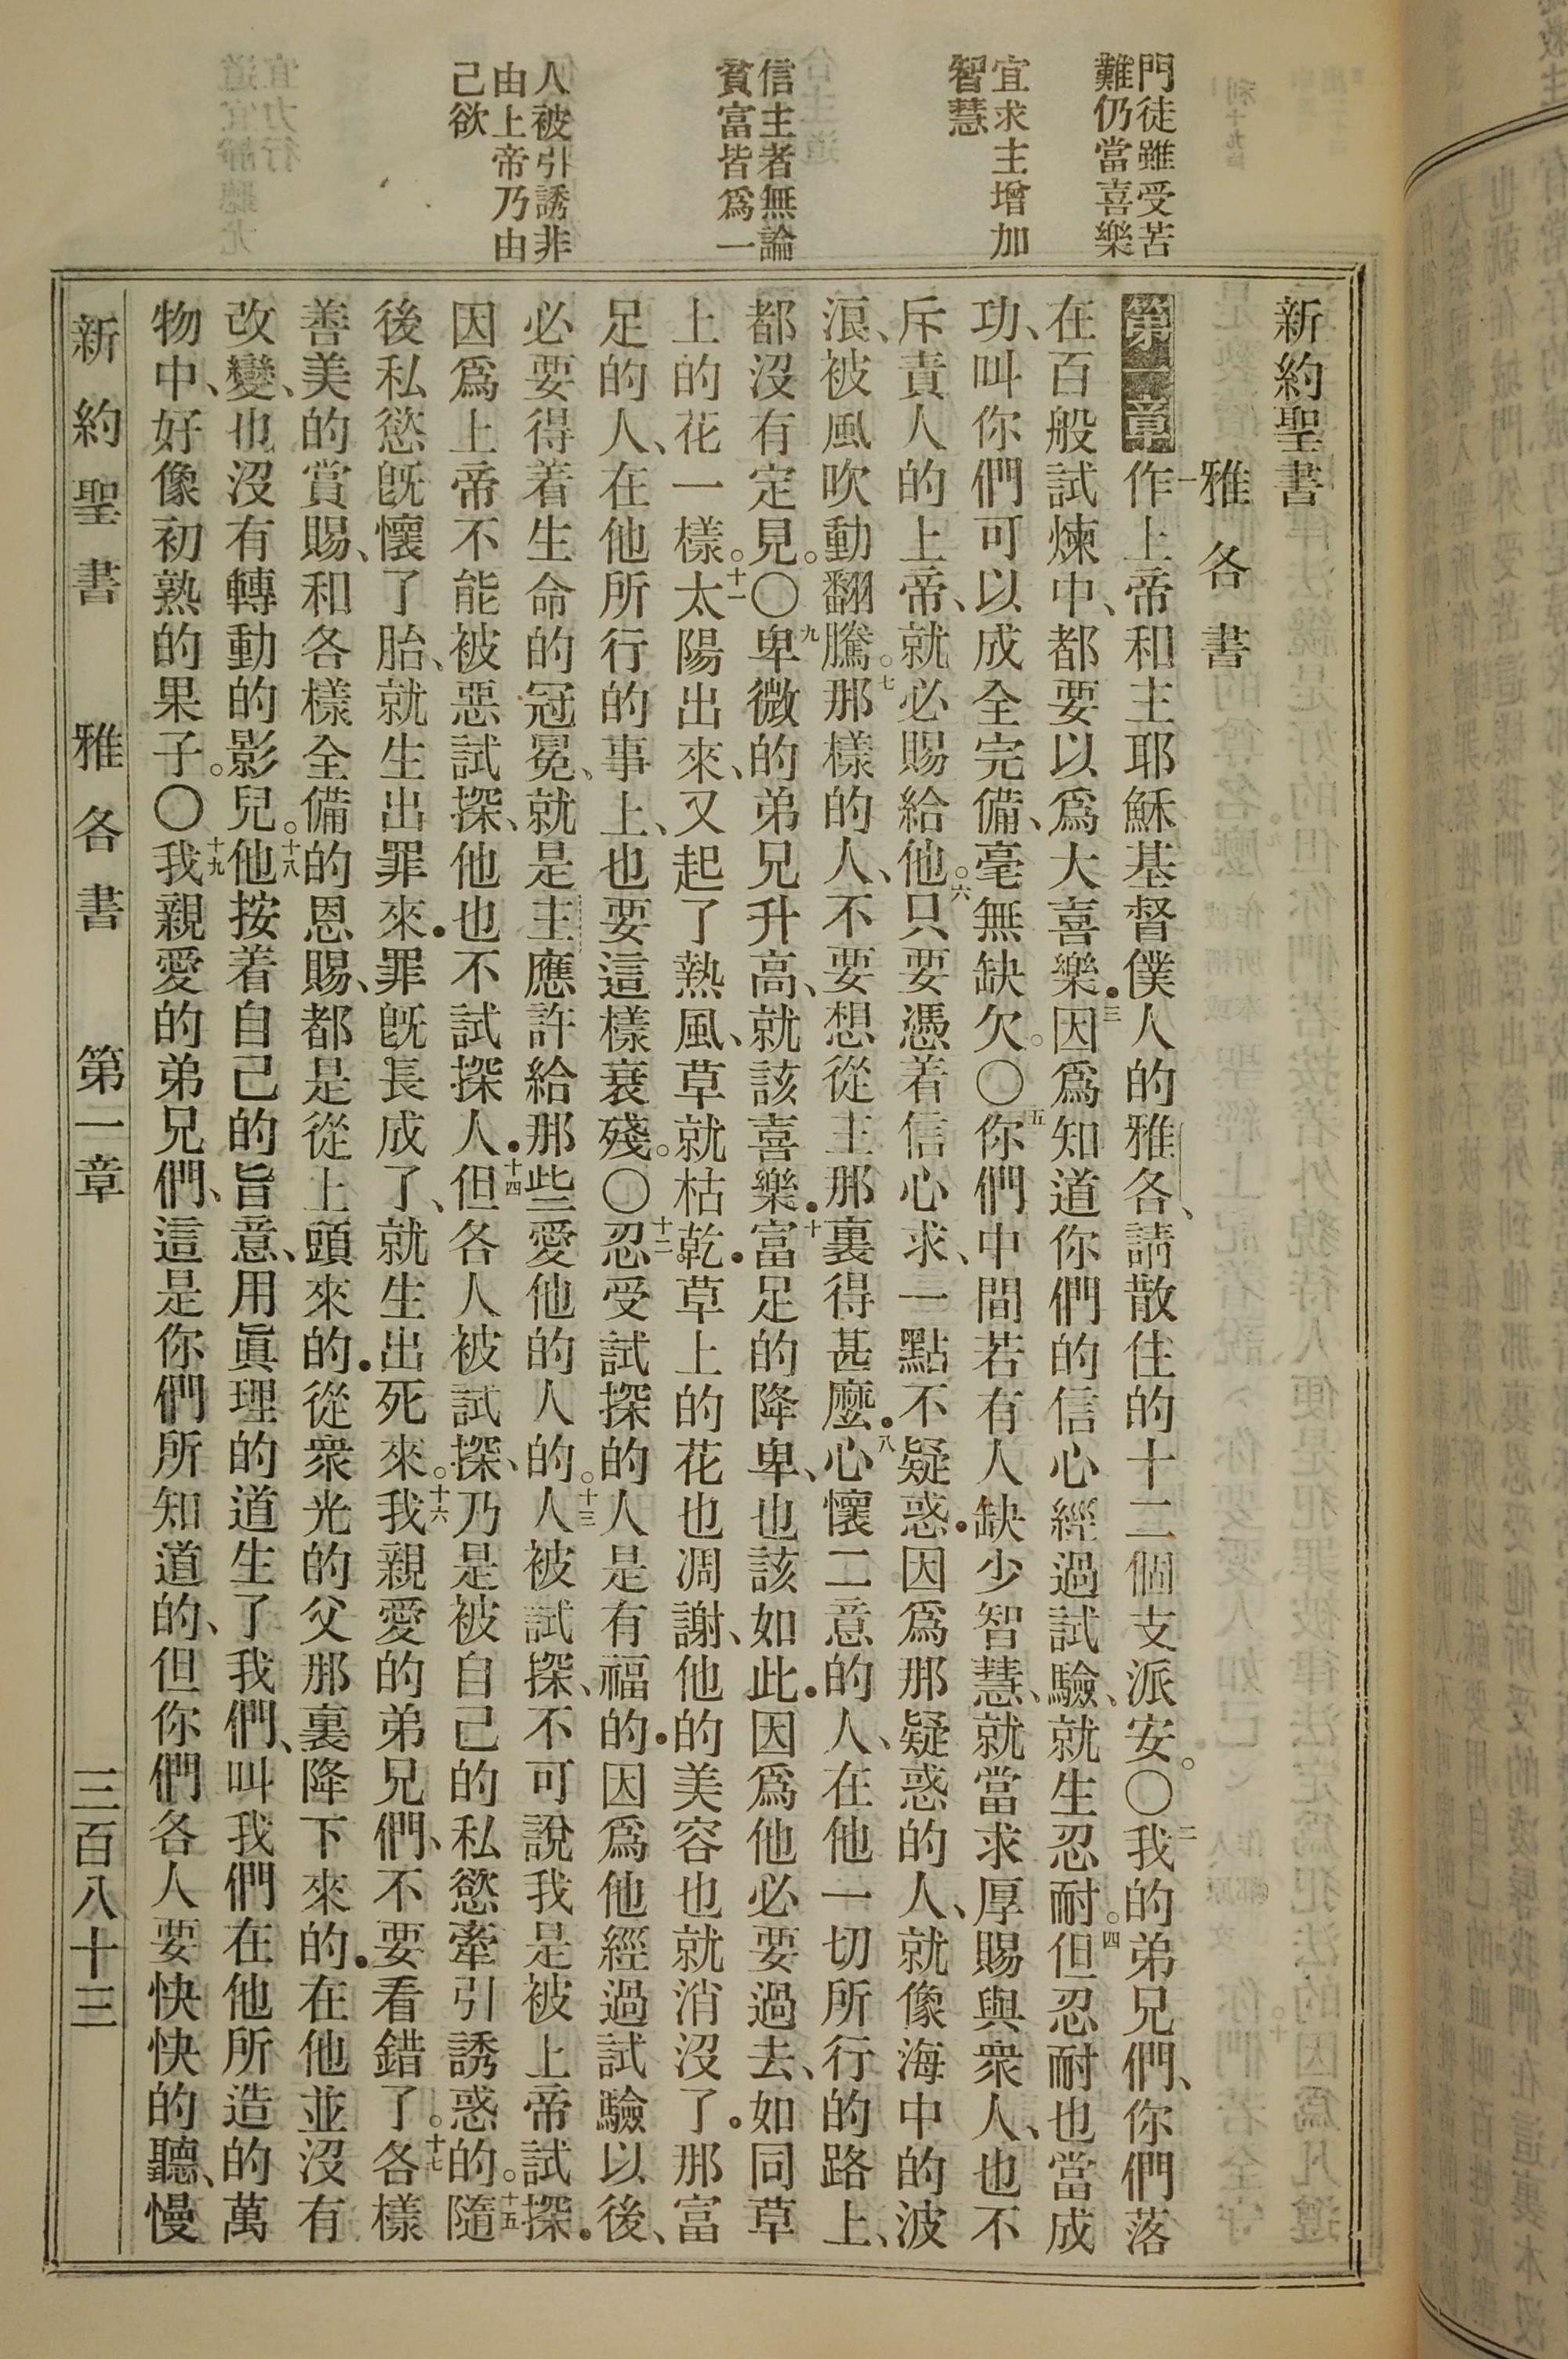 門徒雖受苦
難仍當喜樂
宜求主增加
智慧
信主者無論
貧富皆爲一
人被引誘非
由上帝乃由
己欲
新約聖書
雅各書
第一章 一作上帝和主耶穌基督僕人的雅各、請散住的十二個支派安。〇二我的弟兄們、你們落
在百般試煉中、都要以爲大喜樂．三因爲知道你們的信心經過試驗、就生忍耐。四但忍耐也當成
功、叫你們可以成全完備、毫無缺欠。〇五你們中間若有人缺少智慧、就當求厚賜與衆人、也不
斥責人的上帝、就必賜給他。六只要憑着信心求、一點不疑惑．因爲那疑惑的人、就像海中的波
浪、被風吹動翻騰。七那樣的人、不要想從主那裏得甚麼．八心懷二意的人、在他一切所行的路上、
都沒有定見。〇九卑微的弟兄升高、就該喜樂．十富足的降卑、也該如此．因爲他必要過去、如同草
上的花一樣。十一太陽出來、又起了熱風、草就枯乾．草上的花也凋謝、他的美容也就消沒了．那富
足的人、在他所行的事上、也要這樣衰殘。〇十二忍受試探的人是有福的．因爲他經過試驗以後、
必要得着生命的冠冕、就是主應許給那些愛他的人的。十三人被試探、不可說我是被上帝試探．
因爲上帝不能被惡試探、他也不試探人．十四但各人被試探、乃是被自己的私慾牽引誘惑的。十五隨
後私慾旣懷了胎、就生出罪來．罪旣長成了、就生出死來。十六我親愛的弟兄們、不要看錯了。十七各樣
善美的賞賜、和各樣全備的恩賜、都是從上頭來的．從衆光的父那裏降下來的．在他並沒有
改變、也沒有轉動的影兒。十八他按着自己的旨意、用眞理的道生了我們、叫我們在他所造的萬
物中、好像初熟的果子。〇十九我親愛的弟兄們、這是你們所知道的、但你們各人要快快的聽、慢
新約聖書 雅各書 第一章 三百八十三